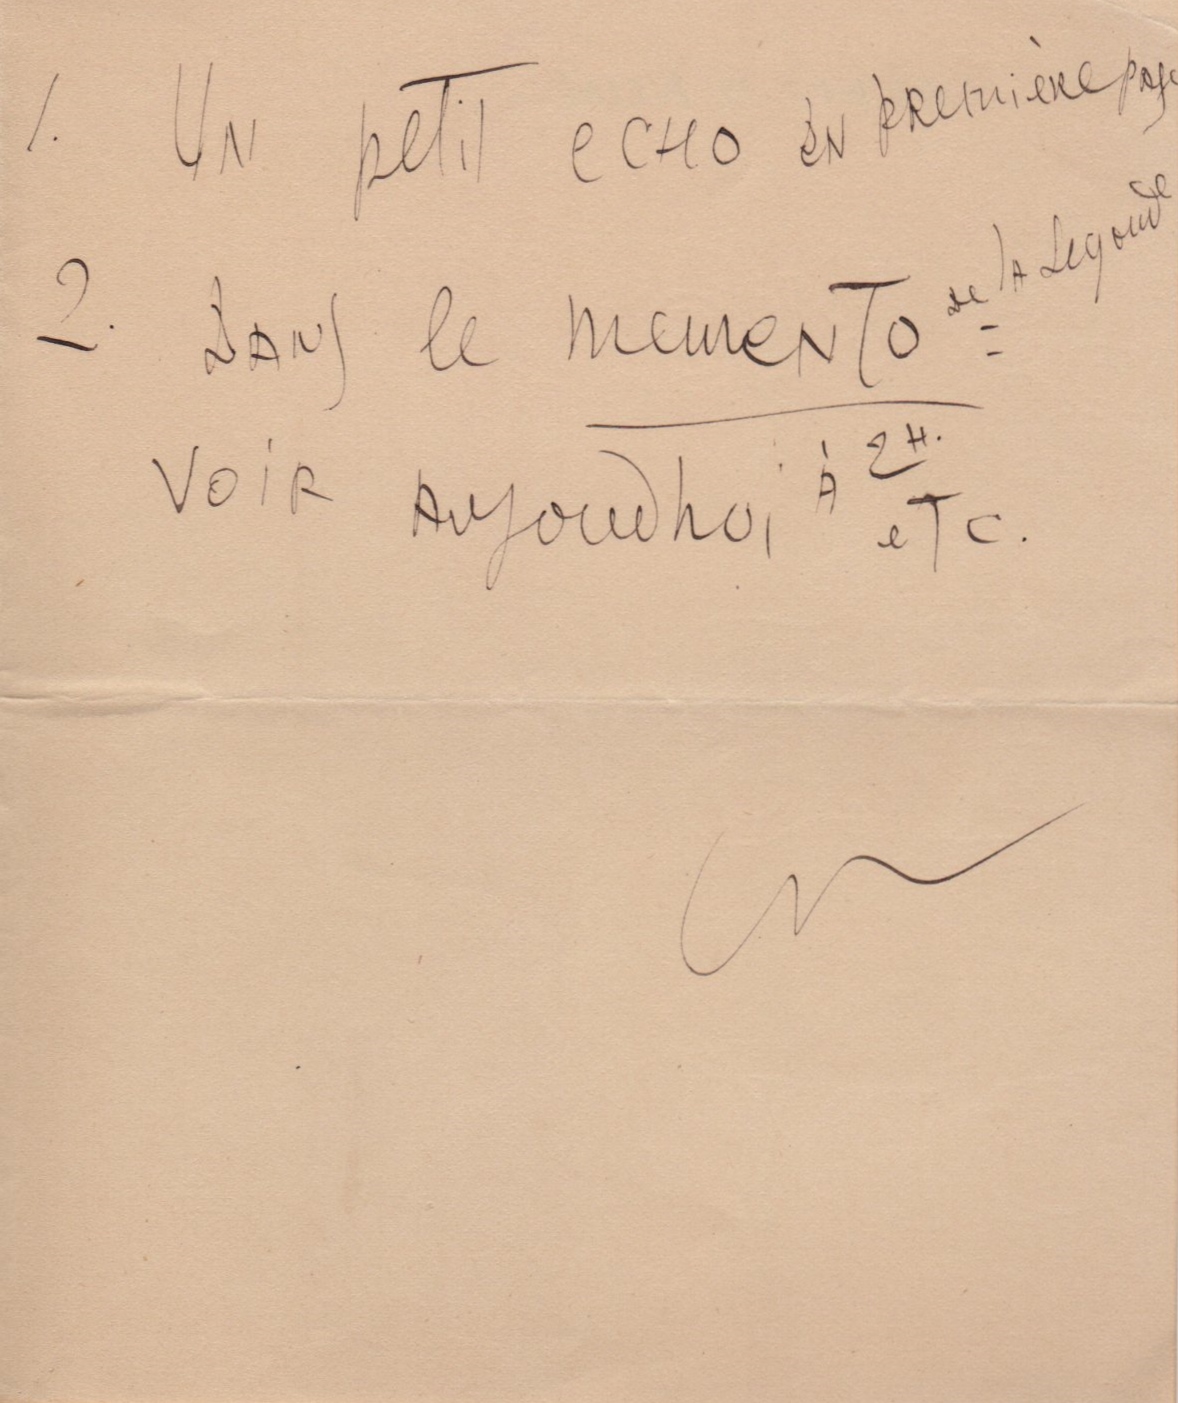 1. Un petit echo en première page
2. Dans le memento de la segonde
voir aujourdhui à 2H.
etc.